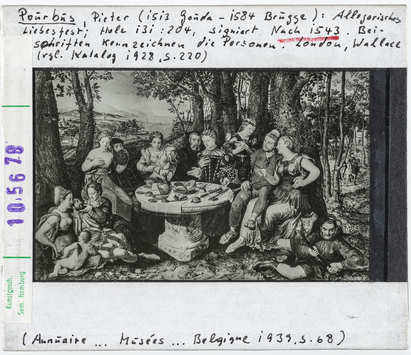 Pourbus, Pieter (1513 Gouda - 1584 Brügge): Allegorisches
Liebesfest; Holz 131:204, signiert Nach 1543. Bei-
schriften kennzeichnen die Personen. London, Wallace
(vgl. Katalog 1928, S. 220)
105678
Kunstgesch.
Sem. Hamburg
(Annuaire ... Musées ... Belgique 1939, S. 68)